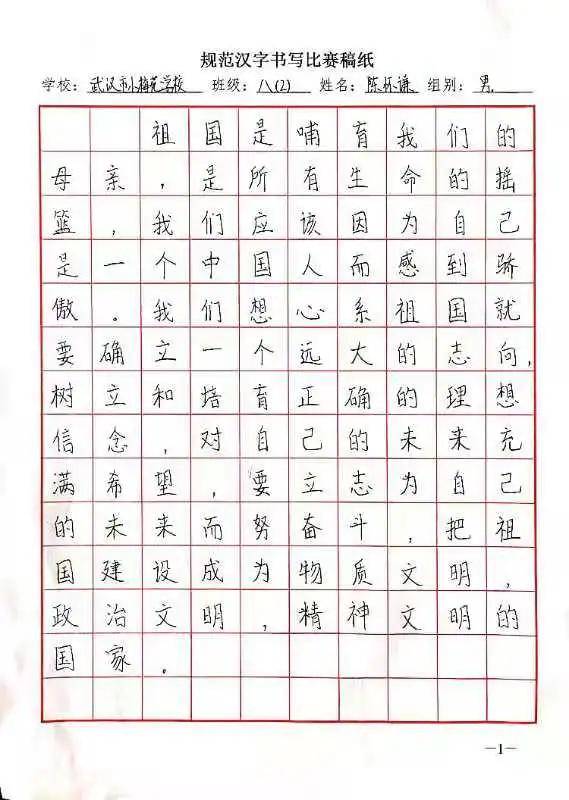 规范汉字书写比赛稿纸
学校：武汉市小梅花学校 班级：八(2) 姓名：陈怀谦 组别：男
祖国是哺育我们的
母亲，是所有生命的摇
篮，我们应该因为自己
是一个中国人而感到骄
傲。我们想心系祖国就
要确立一个远大的志向，
树立和培育正确的理想
信念，对自己的未来充
满希望，要立志为自己
的未来而努奋斗，把祖
国建设成为物质文明，
政治文明，精神文明的
国家。
—1—